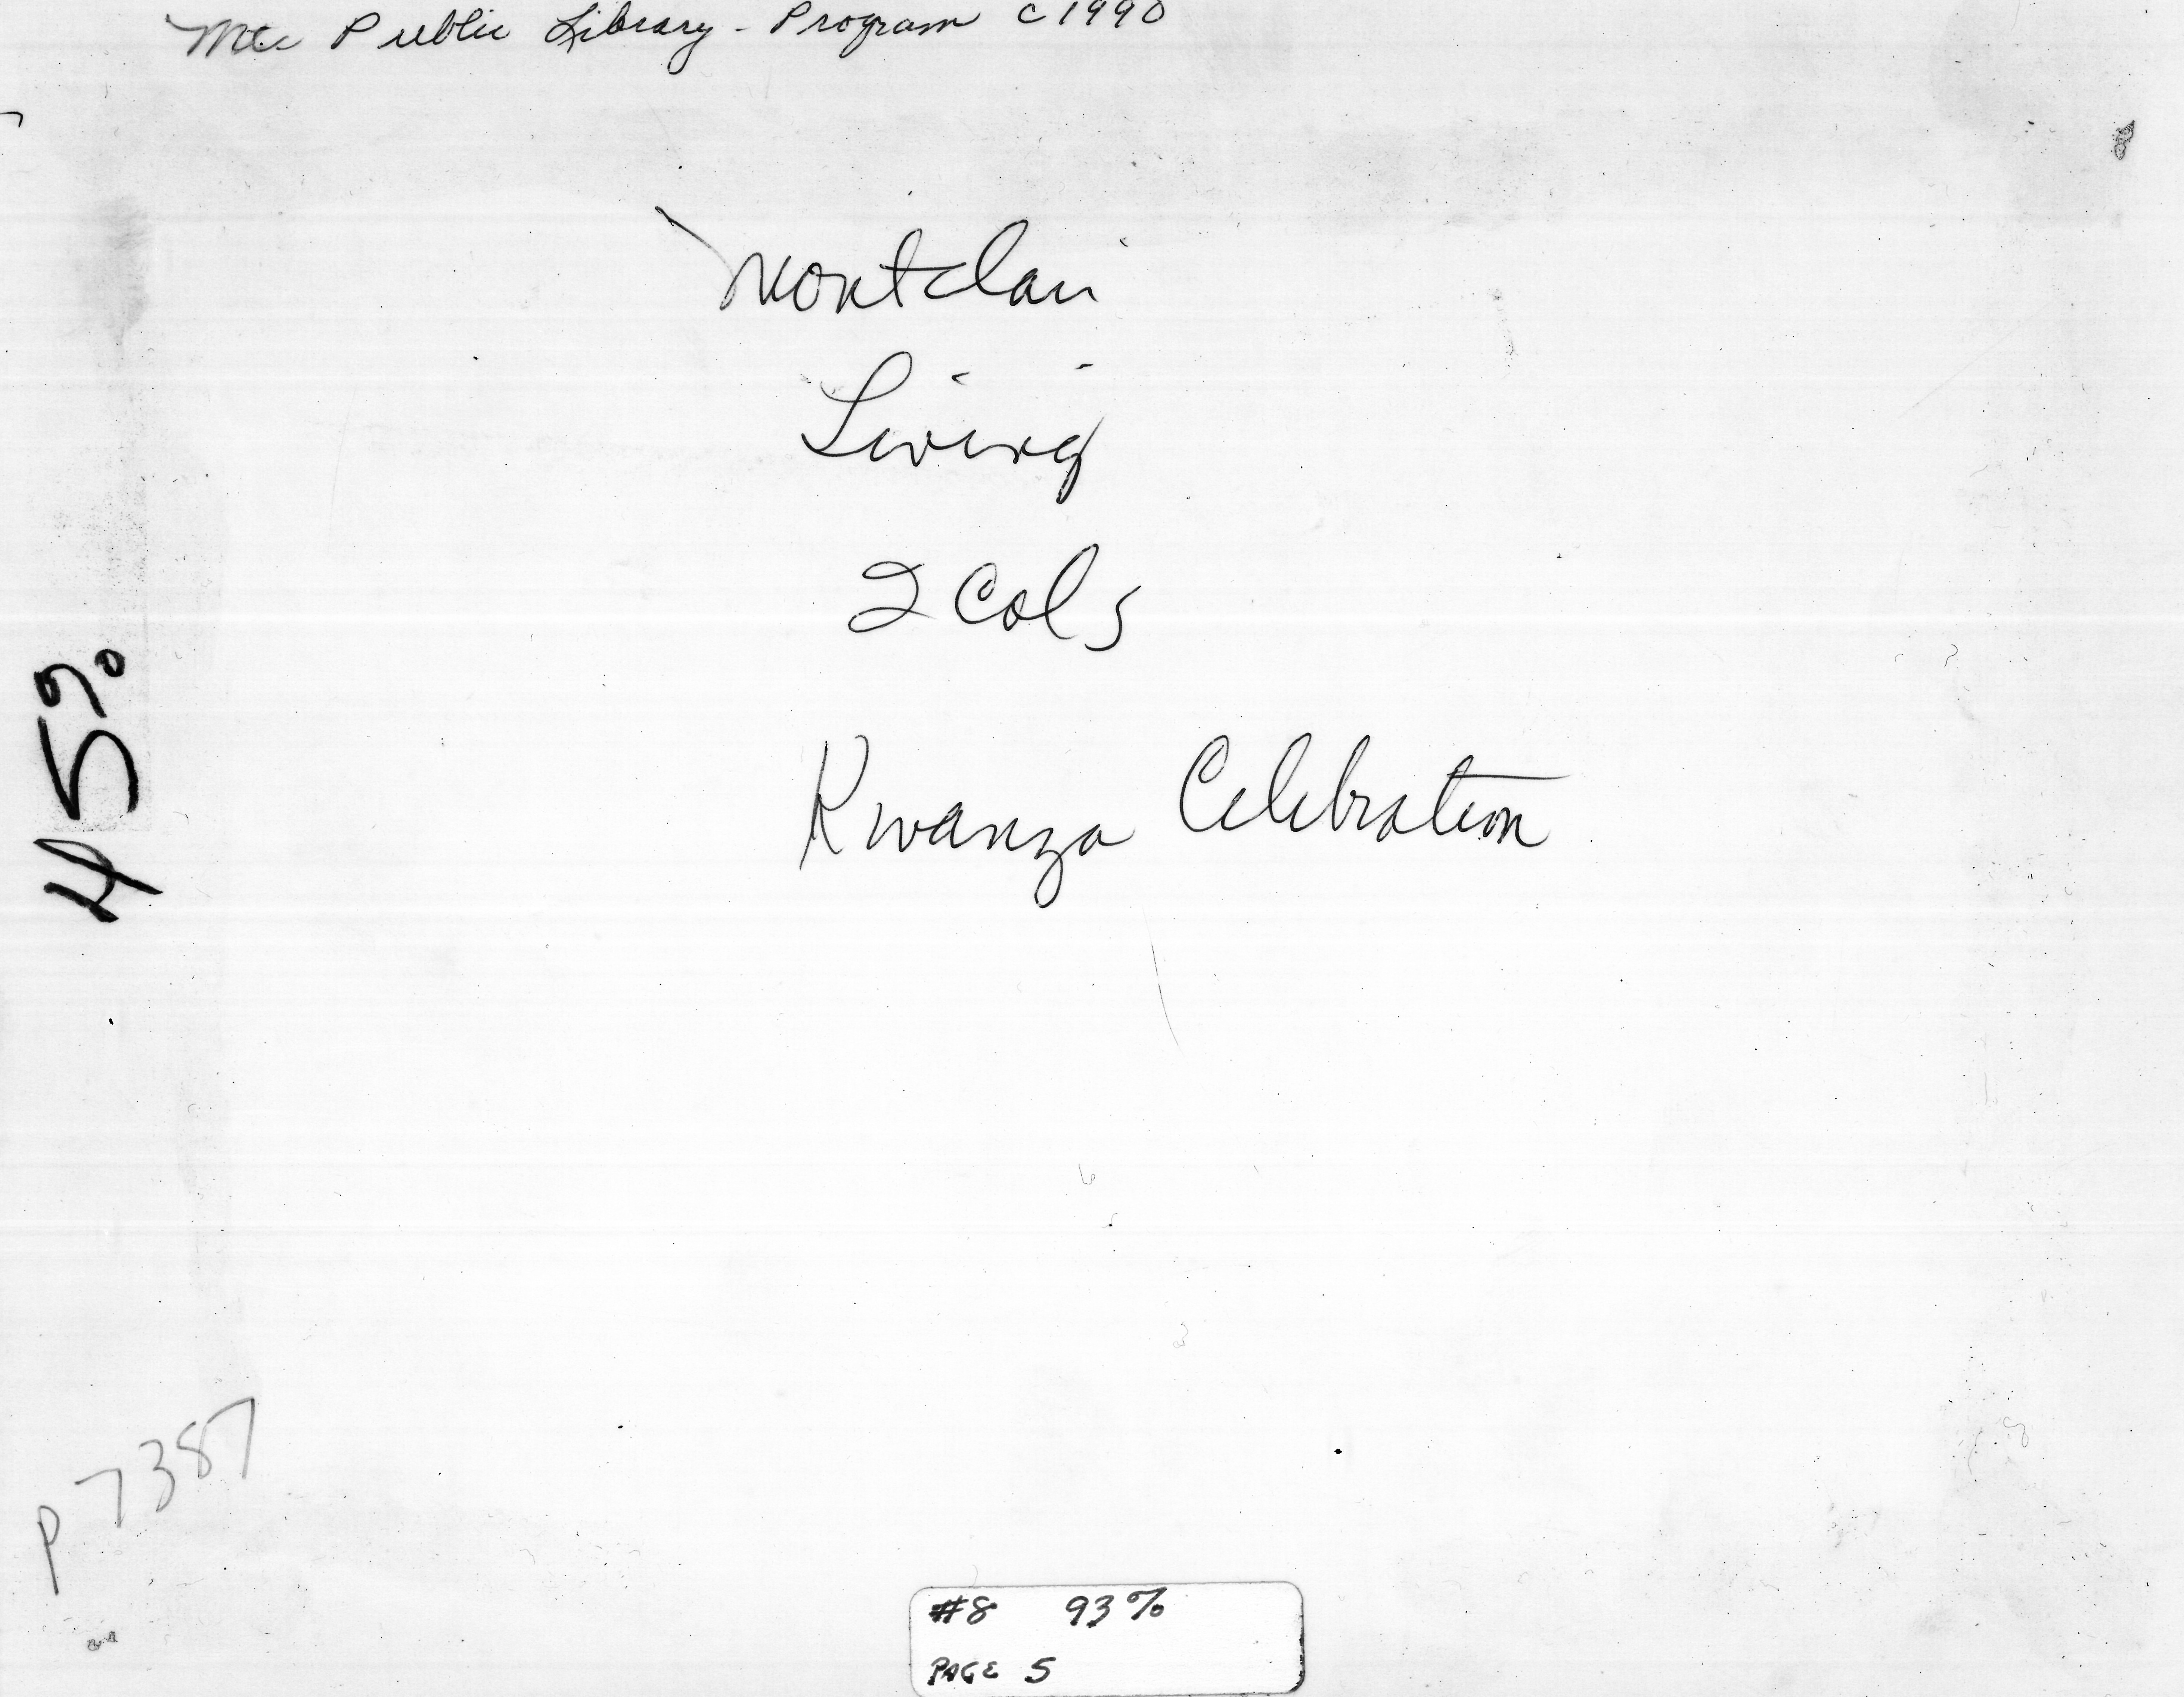 Mtc Public Library - Program c 1990
Montclair
Living
2 Cols
Kwanza Celebration
45%
P 7387
#8 93%
PAGE 5